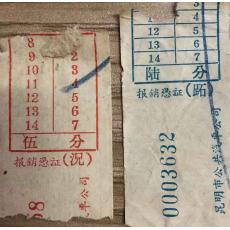 8
9 2
10 3
11 4
12 5
13 6
14 7
伍 分
报销凭证(况)
汽车公司
12 5
13 6
14 7
陆 分
报销凭证(跖)
0003632
昆明市公共汽車公司